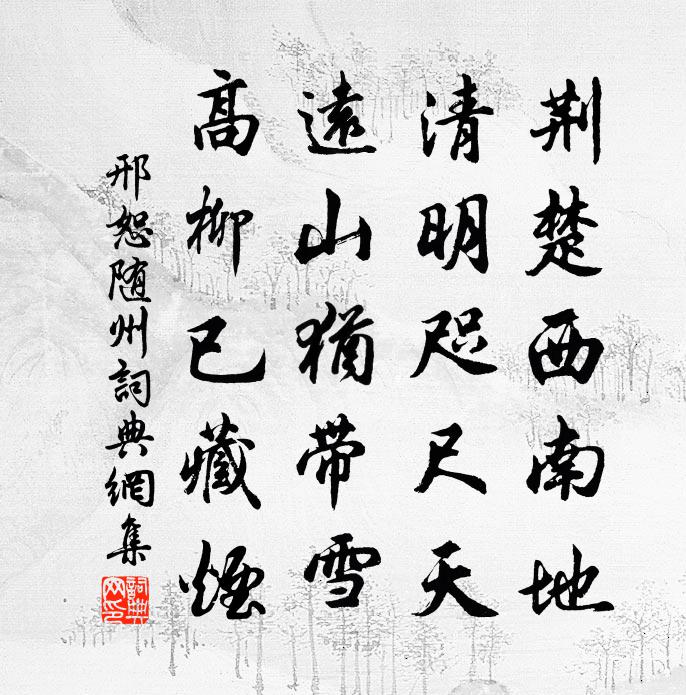 荆楚西南地
清明咫尺天
遠山猶带雪
高柳已藏煙
邢恕随州詞典網集